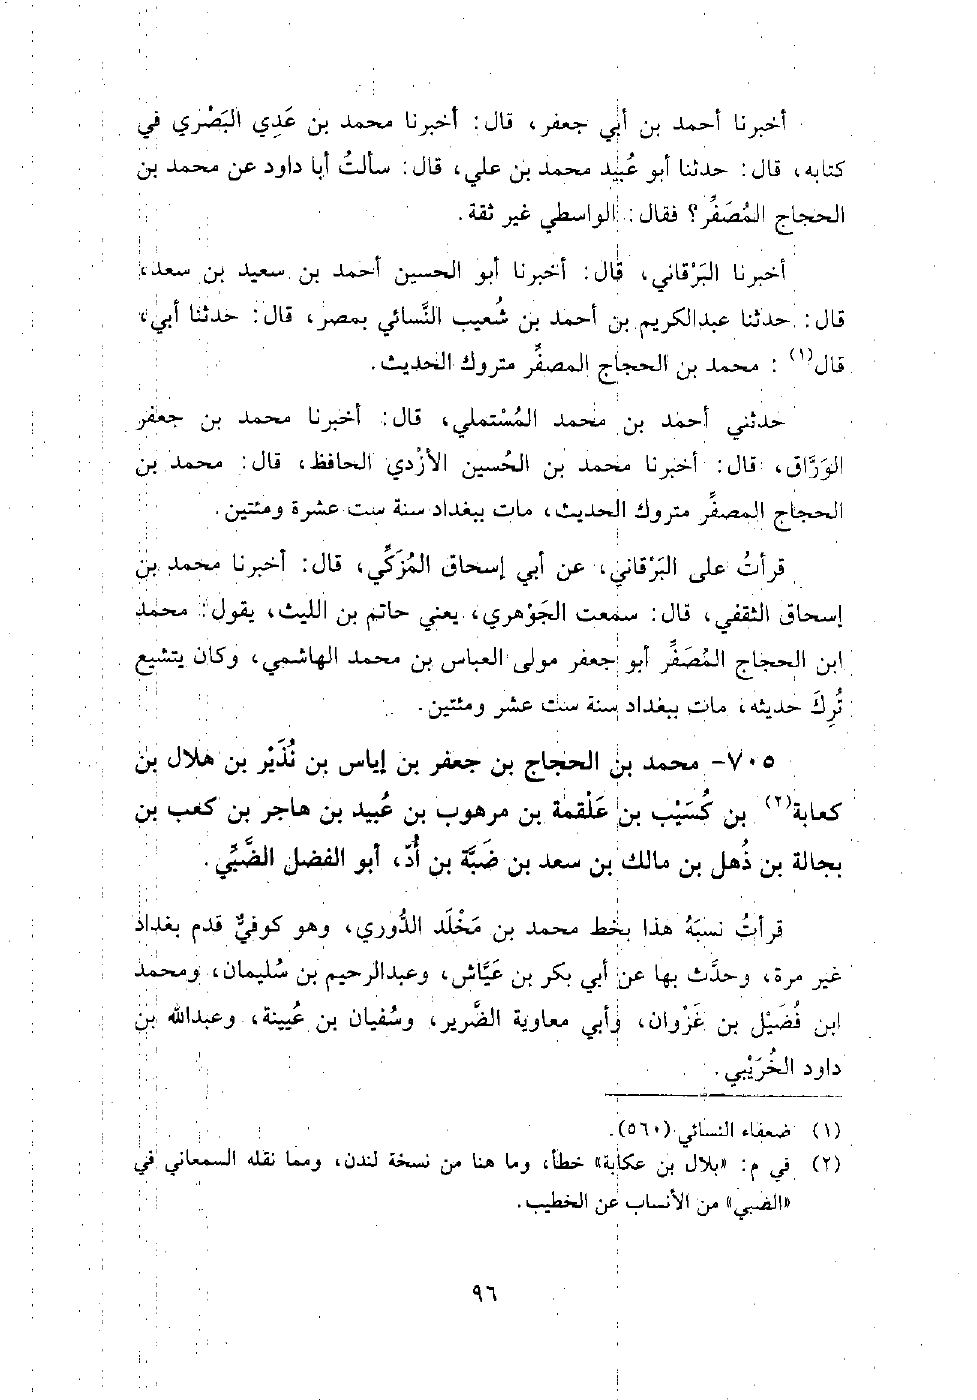 أخبرنا أحمد بن أبي جعفر، قال: أخبرنا محمد بن عَدِي البَصْري في
كتابه، قال: حدثنا أبو عُبيد محمد بن علي، قال: سألتُ أبا داود عن محمد بن
الحجاج المُصَفِّر؟ فقال: الواسطي غير ثقة.
أخبرنا البَرْقاني، قال: أخبرنا أبو الحسين أحمد بن سعيد بن سعد،
قال: حدثنا عبدالكريم بن أحمد بن شُعيب النَّسائي بمصر، قال: حدثنا أبي،
قال(١): محمد بن الحجاج المصفِّر متروك الحديث.
حدثني أحمد بن محمد المُسْتملي، قال: أخبرنا محمد بن جعفر
الوَرَّاق، قال: أخبرنا محمد بن الحُسين الأزْدي الحافظ، قال: محمد بن
الحجاج المصفِّر متروك الحديث، مات ببغداد سنة ست عشرة ومئتين.
قرأتُ على البَرْقاني، عن أبي إسحاق المُزَكِّي، قال: أخبرنا محمد بن
إسحاق الثقفي، قال: سمعت الجَوْهري، يعني حاتم بن الليث، يقول: محمد
ابن الحجاج المُصَفِّر أبو جعفر مولى العباس بن محمد الهاشمي، وكان يتشيع
تُرِكَ حديثه، مات ببغداد سنة ست عشر ومئتين.
٧٠٥- محمد بن الحجاج بن جعفر بن إياس بن نُذَيْر بن هلال بن
كعابة(٢) بن كُسَيْب بن عَلْقمة بن مرهوب بن عُبيد بن هاجر بن كعب بن
بجالة بن ذُهل بن مالك بن سعد بن ضَبَّة بن أُدّ، أبو الفضل الضَّبِّي.
قرأتُ نسبَهُ هذا بخط محمد بن مَخْلَد الدُّوري، وهو كوفيٌّ قدم بغداد
غير مرة، وحدَّث بها عن أبي بكر بن عَيَّاش، وعبدالرحيم بن سُليمان، ومحمد
ابن فُضَيْل بن غَزْوان، وأبي معاوية الضَّرير، وسُفيان بن عُيينة، وعبدالله بن
داود الخُرَيْبي.
(١) ضعفاء النسائي (٥٦٠).
(٢) في م: «بلال بن عكابة» خطأ، وما هنا من نسخة لندن، ومما نقله السمعاني في
«الضبي» من الأنساب عن الخطيب.
٩٦